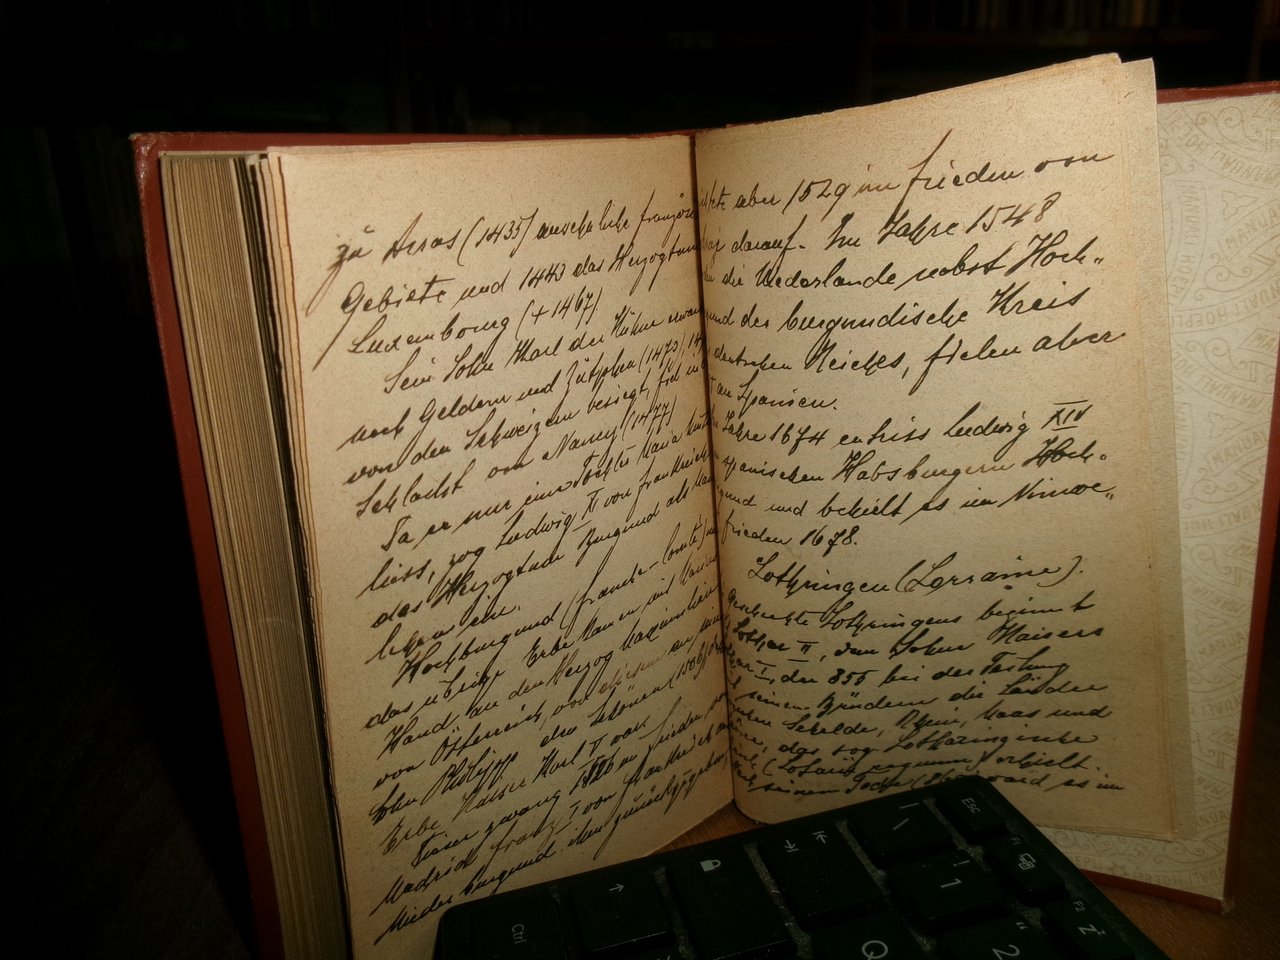 zu Arras (1435) ansehnliche französ
Gebiete und 1443 das Herzogtum
Luxembourg (+ 1467)
Sein Sohn Karl der Kühne erwarb
auch Geldern und Zütphen (1473)
von den Schweizern besiegt, fiel in
Schlacht von Nancy (1477)
Da er nur eine Tochter Maria
liess, zog Ludwig XI von Frankreich
das Herzogtum Burgund als
lehen ein.
Hochburgund (Franche-Comté)
das übrige Erbe kamen mit
Hand an den Herzog Maximilian
von Österreich, von diesem an
Sohn Philipp den Schönen
Erbe Kaiser Karl V war.
Dieser zwang 1526 im Frieden von
Madrid Franz I von Frankreich
Niederburgund ihm zurückzugeben,
aber 1529 im Frieden von
darauf. Im Jahre 1548
die Niederlande nebst Hoch-
und der burgundische Kreis
deutschen Reiches, fielen aber
an Spanien.
Jahre 1674 entriss Ludwig XIV
spanischen Habsburgern Hoch-
gund und behielt es im Nimwe-
frieden 1678.
Lothringen (Lorraine).
Geschichte Lothringens beginnt
Lothar II, dem Sohne Kaisers
I, der 855 bei der Teilung
seinen Brüdern die Länder
Schelde, Rhein, Maas und
das sog. Lotharingische
regnum) erhielt.
seinem Tode ward es im
Ctrl
Q
1
2
ESC
F1
F2
Z